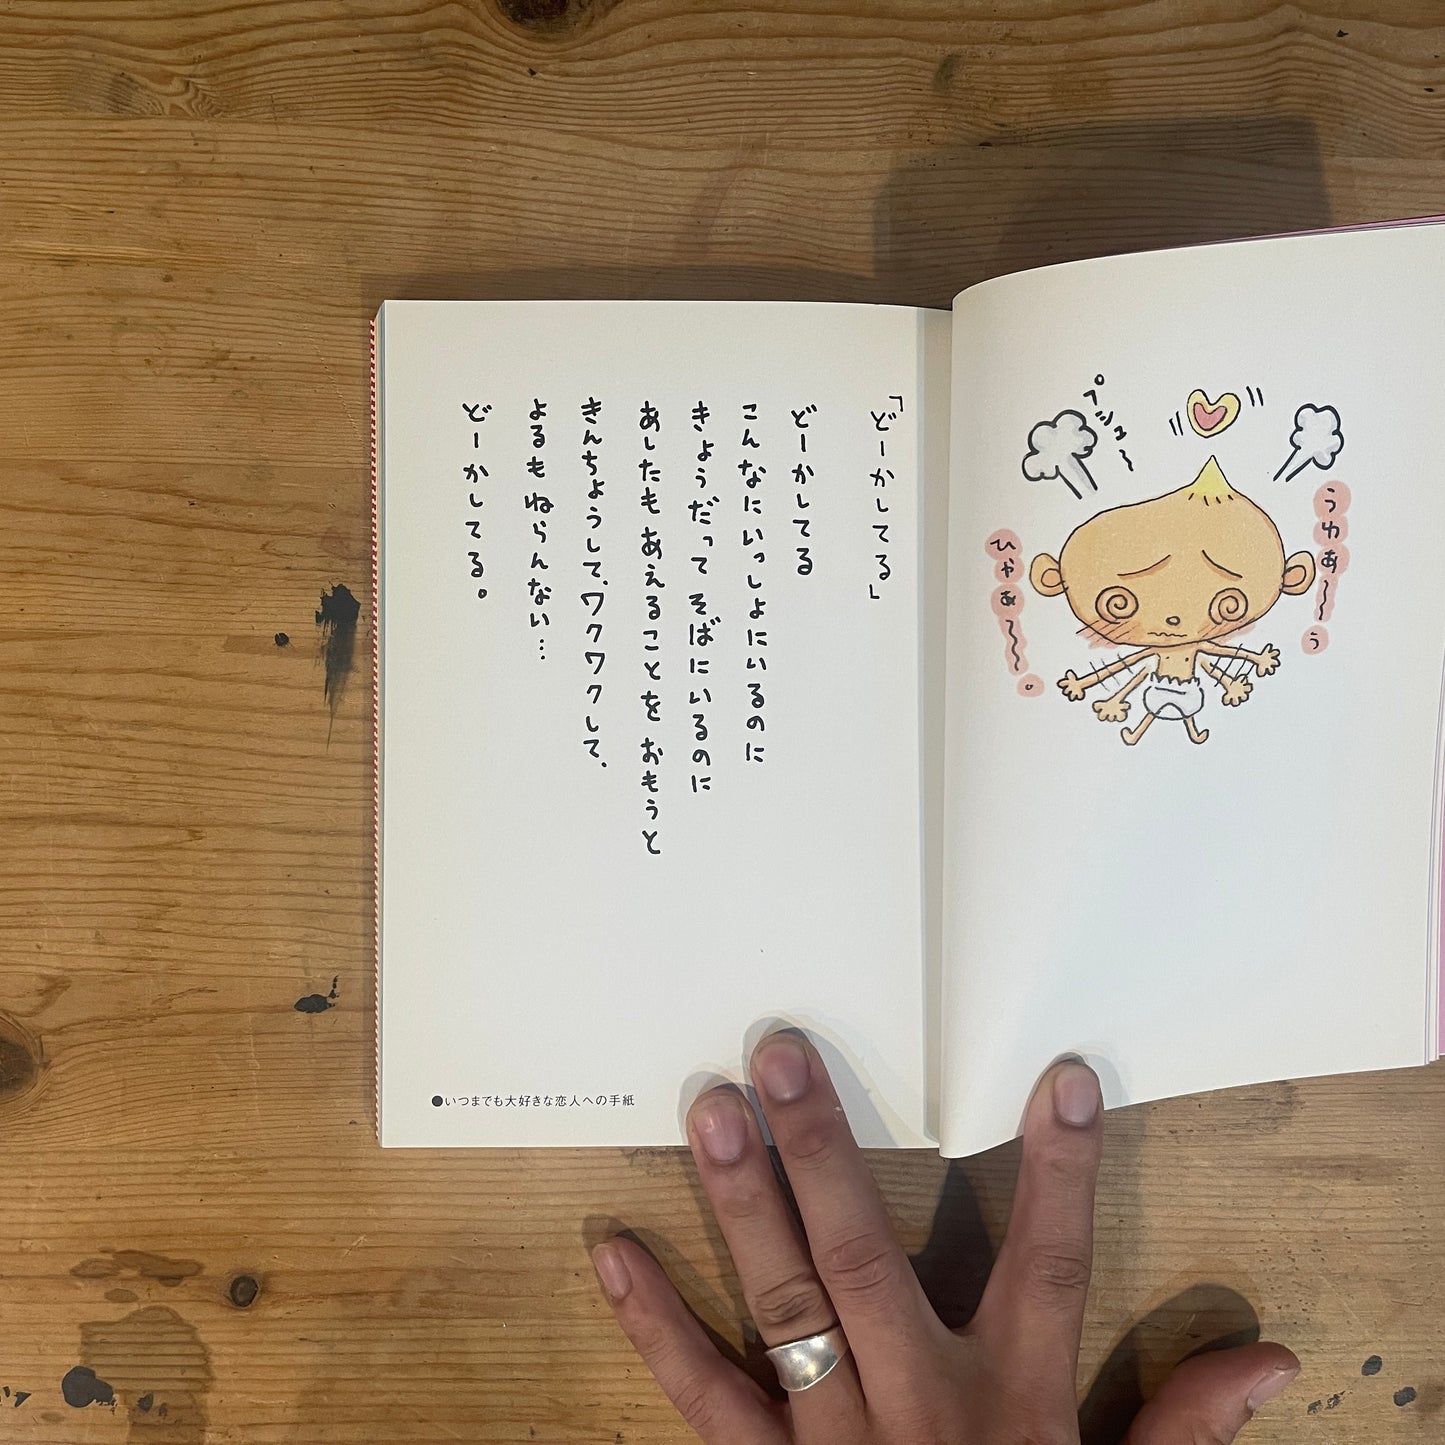 「どーかしてる」
どーかしてる
こんなにいっしょにいるのに
きょうだって そばにいるのに
あしたも あえることを おもうと
きんちょうして、ワクワクして、
よるも ねらんない…
どーかしてる。
●いつまでも大好きな恋人への手紙
うわあ〜〜う
プシュ〜
ひゃぁ〜〜。